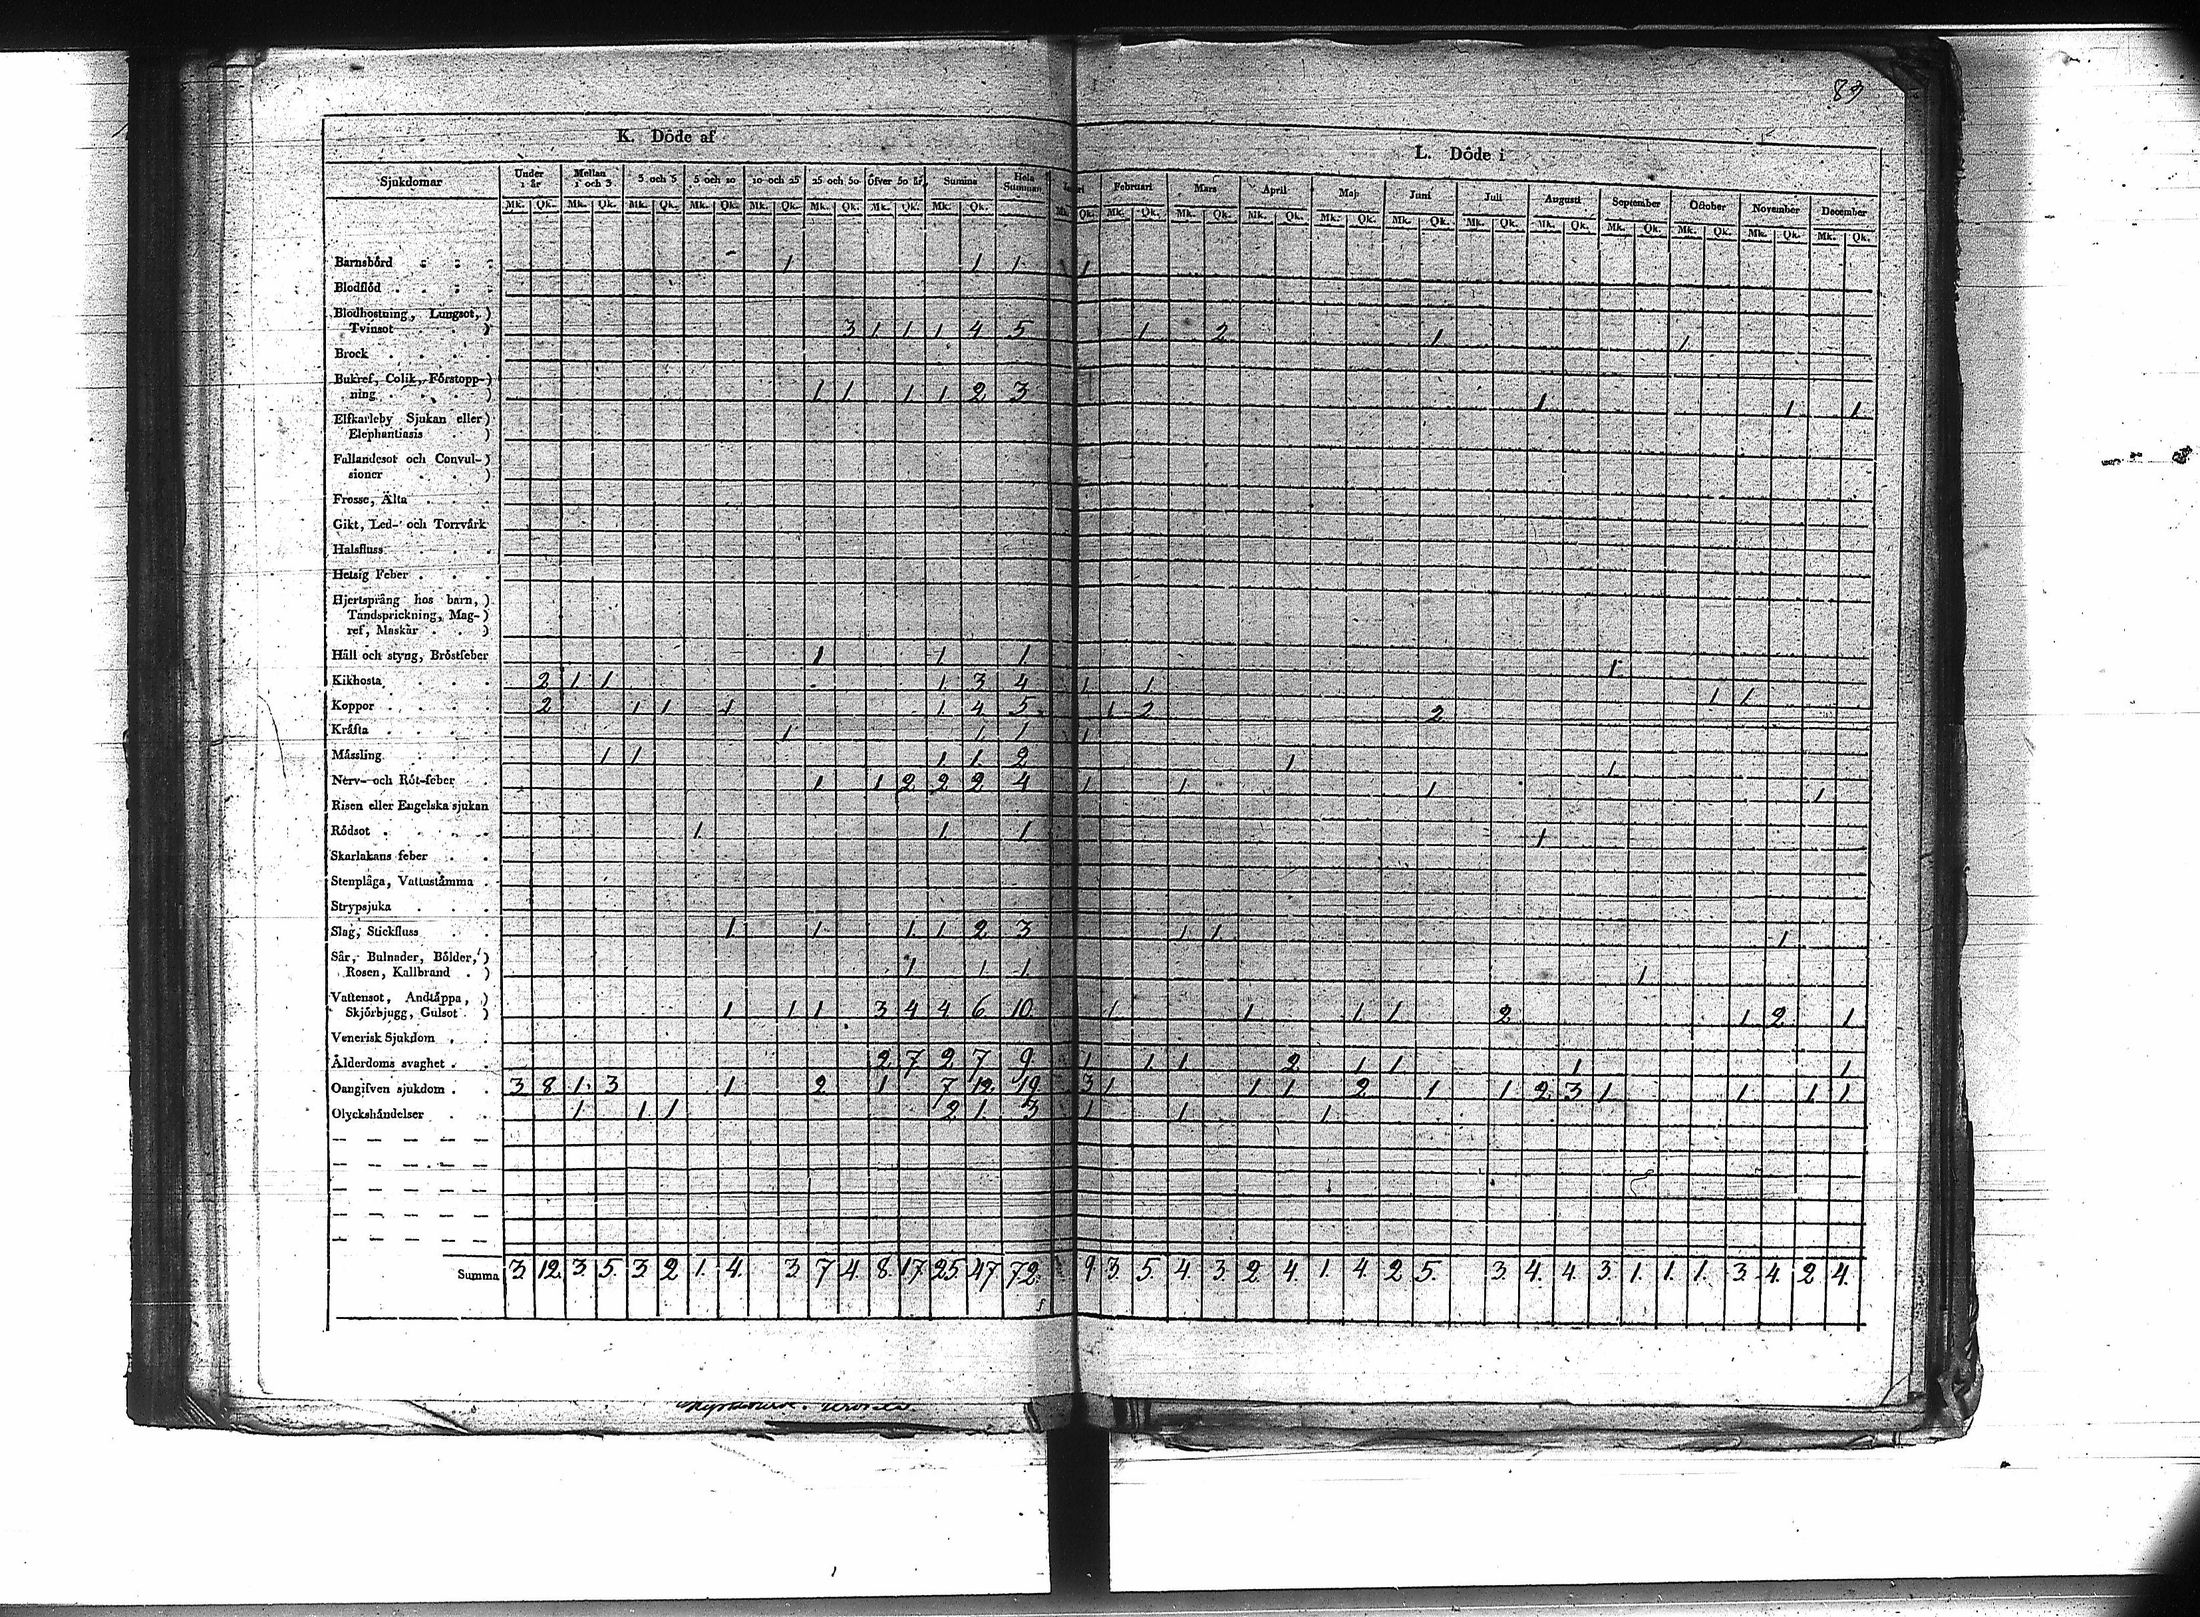 89
K. Döde af
L. Döde i
Sjukdomar Under 1 år Mellan 1 och 3 3 och 5 5 och 10 10 och 25 25 och 50 öfver 50 år Summa Hela Summan Februari Mars April Maj Juni Juli Augusti September October November December
Mk. Qk. Mk. Qk. Mk. Qk. Mk. Qk. Mk. Qk. Mk. Qk. Mk. Qk. Mk. Qk. Mk. Qk. Mk. Qk. Mk. Qk. Mk. Qk. Mk. Qk. Mk. Qk. Mk. Qk. Mk. Qk. Mk. Qk. Mk. Qk. Mk. Qk. Mk. Qk.
Barnsbörd 1 1 1 1
Blodflöd
Blodhostning, Lungsot,)
Tvinsot ) 3 1 1 1 4 5 1 2 1 1
Brock
Bukref, Colik, Förstopp-)
ning ) 1 1 1 1 2 3 1 1 1
Elfkarleby Sjukan eller)
Elephantiasis )
Fallandesot och Convul-)
sioner )
Frosse, Älta
Gikt, Led- och Torrvärk
Halsfluss
Hetsig Feber
Hjertsprång hos barn,)
Tandsprickning, Mag-)
ref, Maskar )
Håll och styng, Bröstfeber 1 1 1 1
Kikhosta 2 1 1 1 3 4 1 1 1 1
Koppor 2 1 1 1 1 4 5 1 2 2
Kräfta 1 1 1 1
Mässling 1 1 1 1 2 1 1
Nerv- och Röt-feber 1 1 2 2 2 4 1 1 1 1
Risen eller Engelska sjukan
Rödsot 1 1 1 1
Skarlakans feber
Stenplåga, Vattustämma
Strypsjuka
Slag, Stickfluss 1 1 1 1 2 3 1 1 1
Sår, Bulnader, Bölder,)
Rosen, Kallbrand ) 1 1 1 1
Vattensot, Andtäppa, )
Skjörbjugg, Gulsot ) 1 1 1 3 4 4 6 10 1 1 1 1 2 1 2 1
Venerisk Sjukdom
Ålderdoms svaghet 2 7 2 7 9 1 1 1 2 1 1 1 1
Oangifven sjukdom 3 8 1 3 1 2 1 7 12 19 3 1 1 1 2 1 1 2 3 1 1 1 1
Olyckshändelser 1 1 1 2 1 3 1 1 1
Summa 3 12 3 5 3 2 1 4 3 7 4 8 17 25 47 72 9 3 5 4 3 2 4 1 4 2 5 3 4 4 3 1 1 1 3 4 2 4